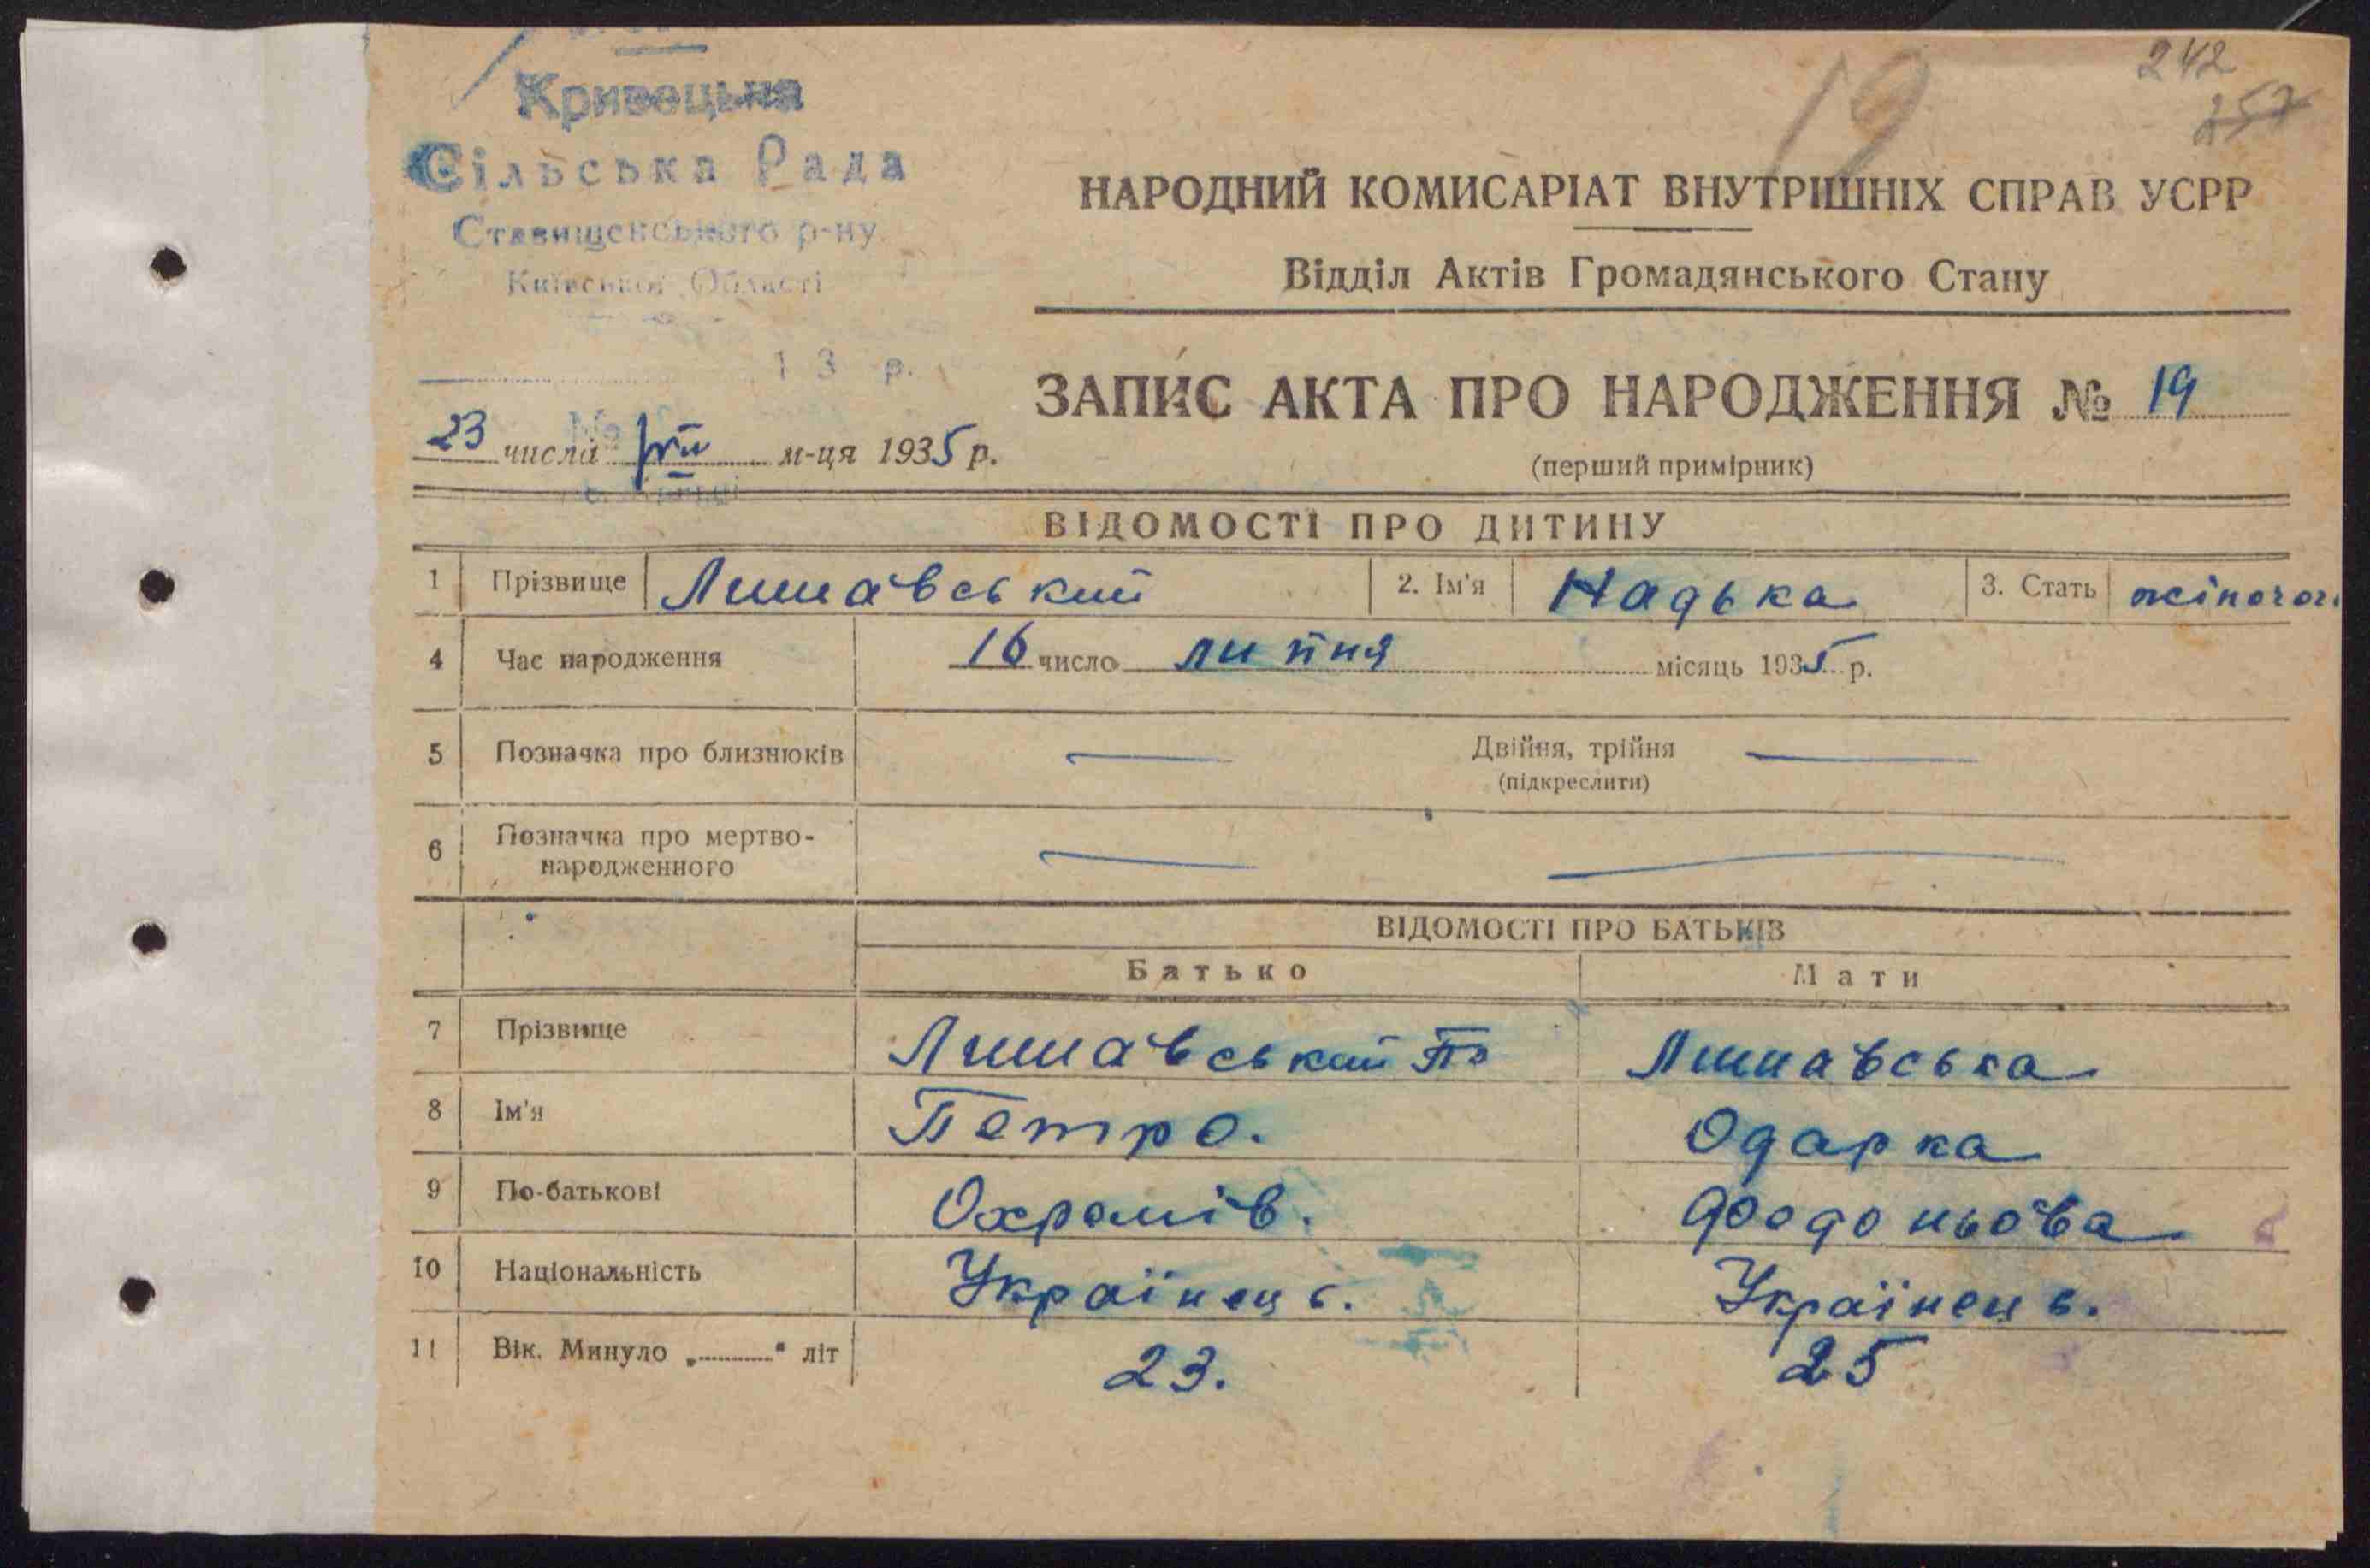 242
19
257
Кривецька
Сільська Рада
Ставищенського р-ну
Київської Області
1 3 р.
№
НАРОДНИЙ КОМИСАРІАТ ВНУТРІШНІХ СПРАВ УСРР
Відділ Актів Громадянського Стану
ЗАПИС АКТА ПРО НАРОДЖЕННЯ № 19
(перший примірник)
23 числа м-ця 1935 р.
ВІДОМОСТІ ПРО ДИТИНУ
1 Прізвище Лишавський 2. Ім'я Надька 3. Стать жіночої
4 Час народження 16 число липня місяць 1935 р.
5 Позначка про близнюків Двійня, трійня
(підкреслити)
6 Позначка про мертво-
народженного
ВІДОМОСТІ ПРО БАТЬКІВ
Батько Мати
7 Прізвище Лишавський Пе Лишавська
8 Ім'я Петро. Одарка
9 По-батькові Охрамів. Феодоньова
10 Національність Українець. Українець.
11 Вік. Минуло „ " літ 23. 25